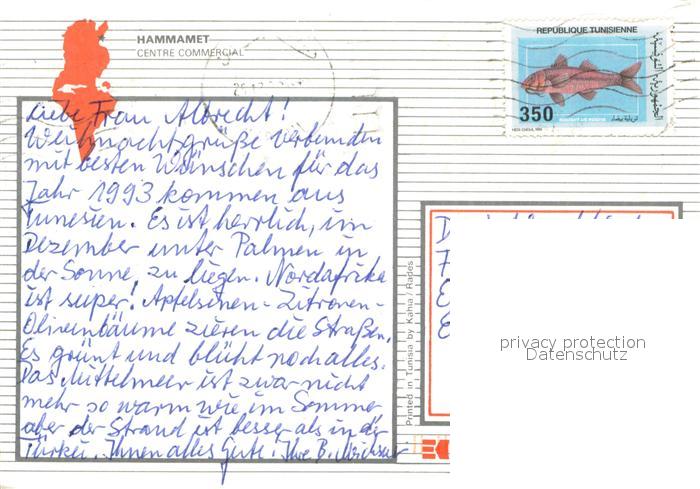 HAMMAMET
CENTRE COMMERCIAL
REPUBLIQUE TUNISIENNE
350
Liebe Frau Albrecht!
Weihnachtsgrüße verbunden
mit besten Wünschen für das
Jahr 1993 kommen aus
Tunesien. Es ist herrlich, im
Dezember unter Palmen in
der Sonne zu liegen. Nordafrika
ist super! Apfelsinen- Zitronen-
Olivenbäume zieren die Straßen.
Es grünt und blüht noch alles.
Das Mittelmeer ist zwar nicht
mehr so warm wie im Sommer
aber der Strand ist besser als in der
Türkei. Ihnen alles Gute. Ihre B.
Printed in Tunisia by Kahia / Rades
privacy protection
Datenschutz